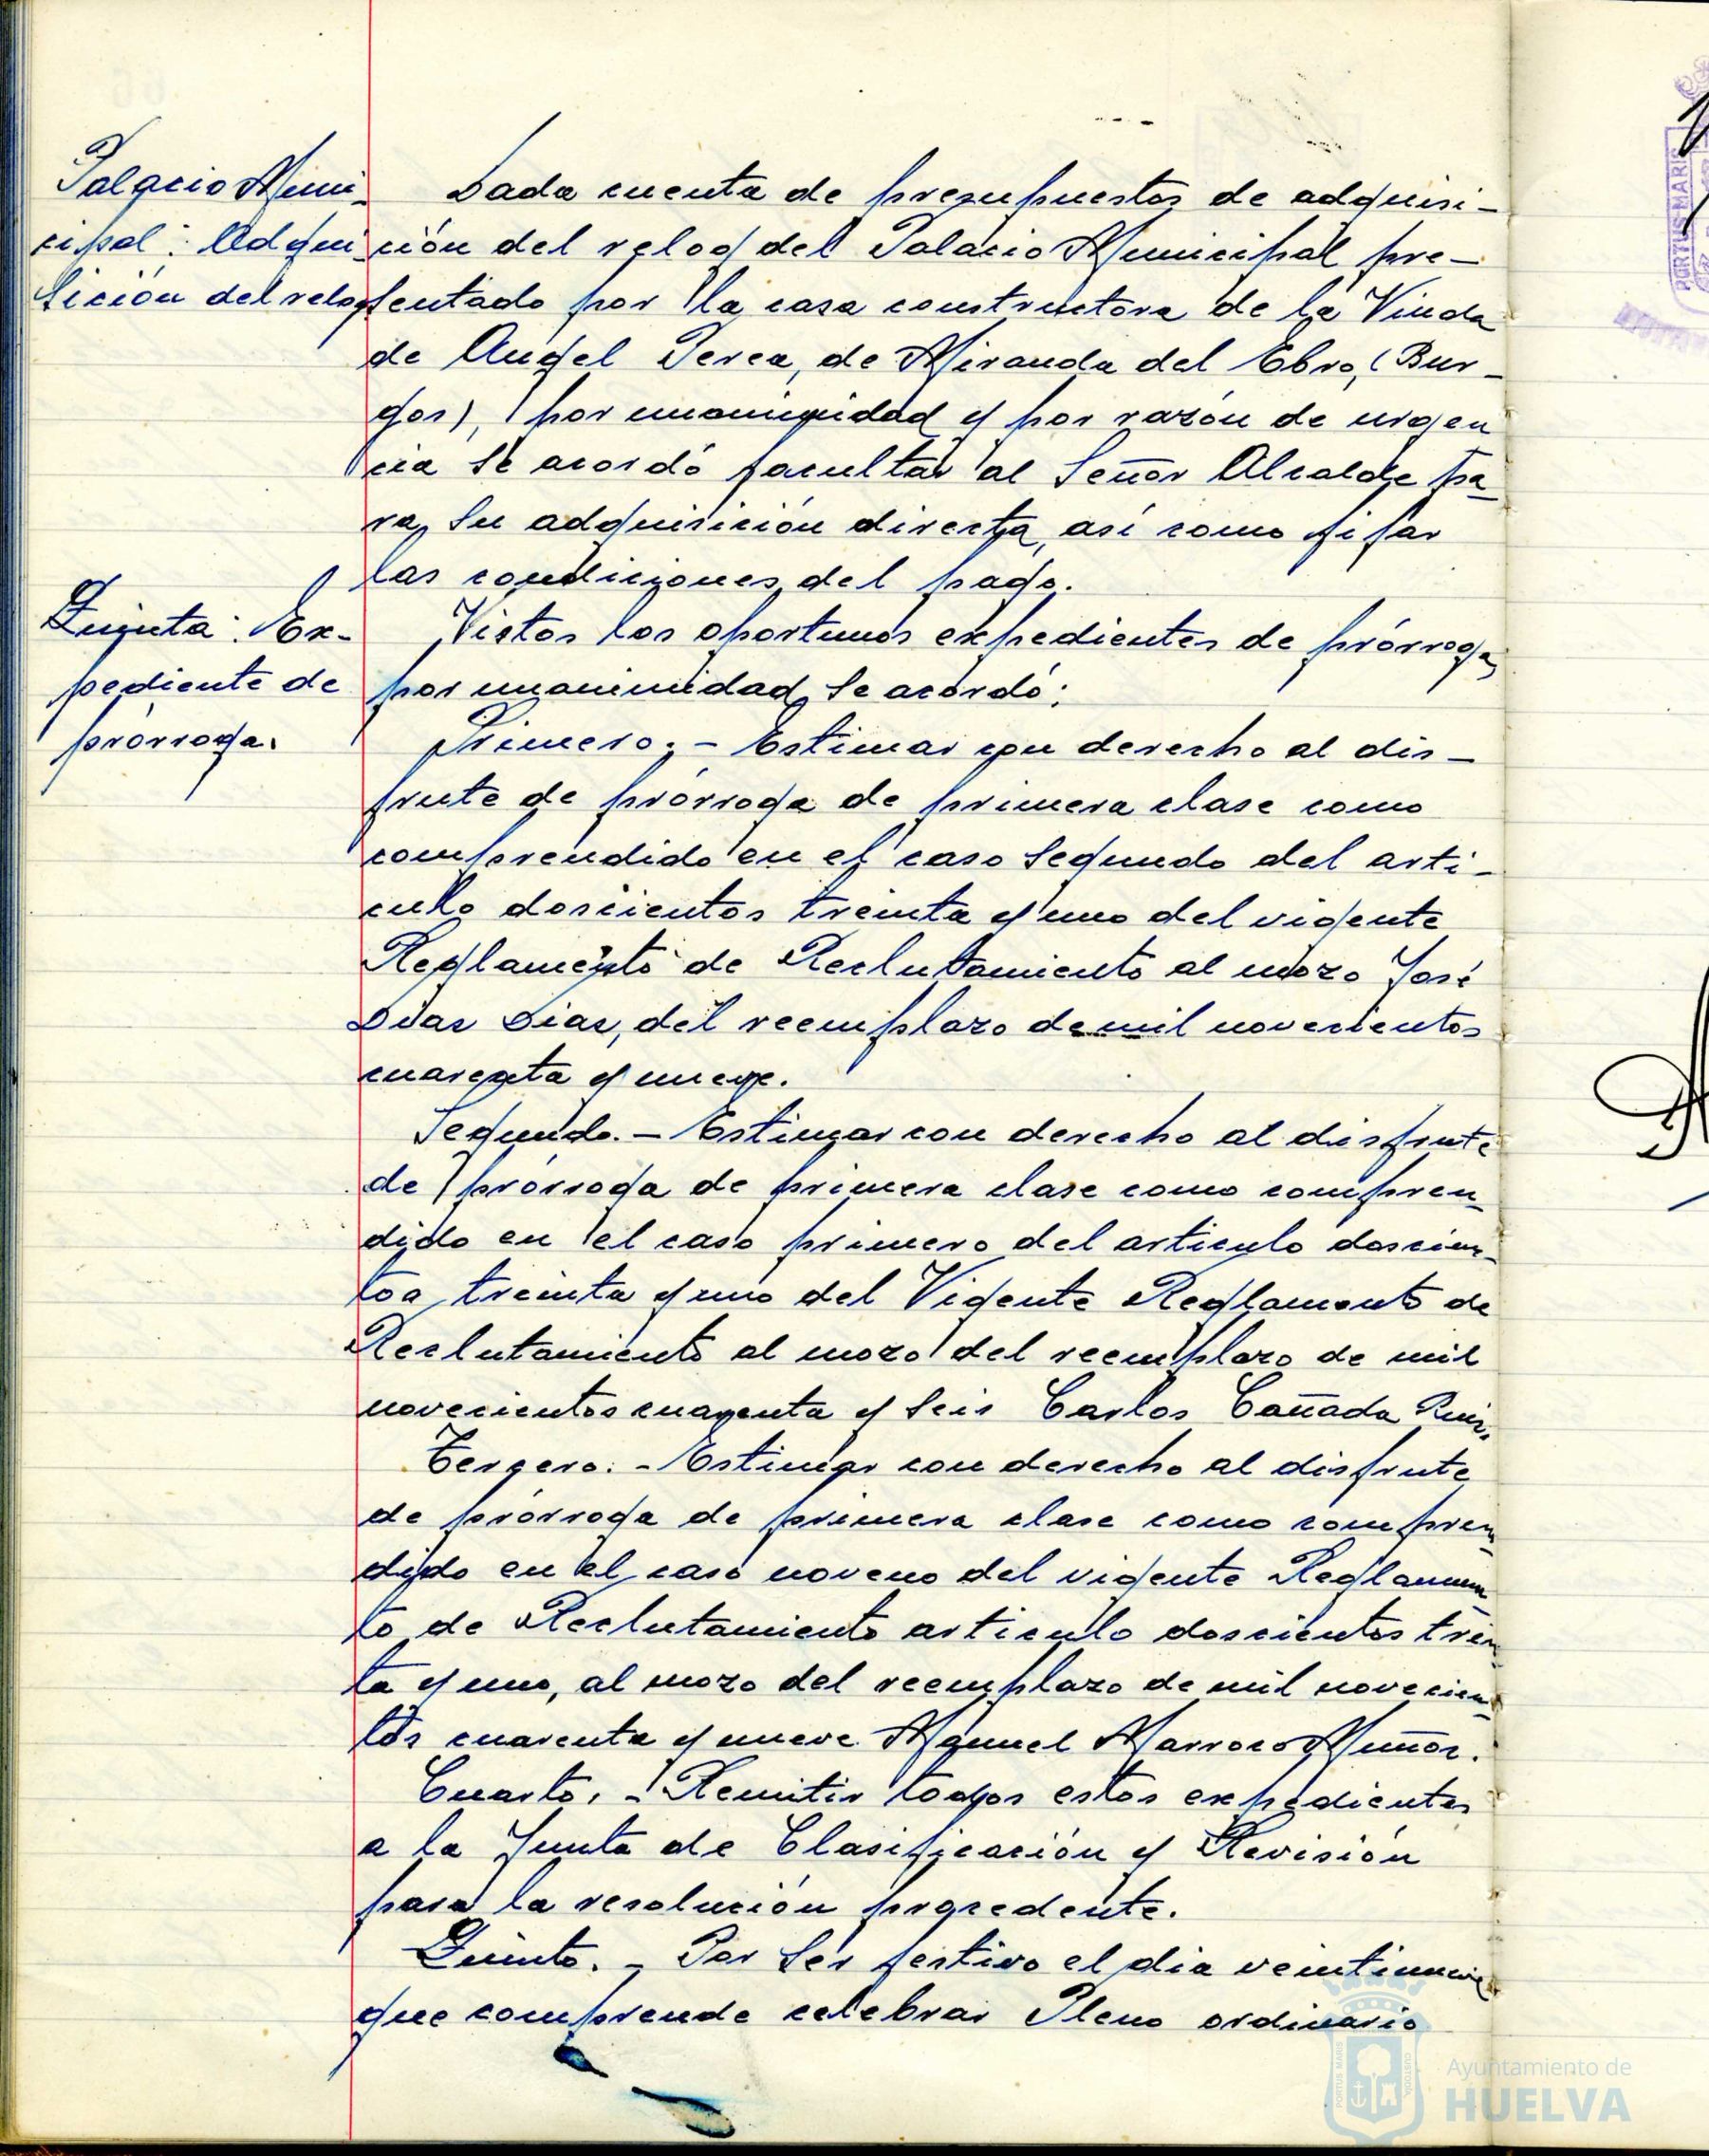 Palacio Muni-
cipal: Adqui-
sición del reloj
Dada cuenta de presupuestos de adquisi-
ción del reloj del Palacio Municipal pre-
sentado por la casa constructora de la Viuda
de Angel Perea, de Miranda del Ebro, (Bur-
gos), por unanimidad y por razón de urgen
cia se acordó facultar al Señor Alcalde pa-
ra su adquisición directa, así como fijar
las condiciones del pago.
Quinta: Ex-
pediente de
prórroga.
Vistos los oportunos expedientes de prórroga,
por unanimidad, se acordó:
Primero.- Estimar con derecho al dis-
frute de prórroga de primera clase como
comprendido en el caso segundo del arti-
culo doscientos treinta y uno del vigente
Reglamento de Reclutamiento al mozo José
Dias Dias, del reemplazo de mil novecientos
cuarenta y nueve.
Segundo.- Estimar con derecho al disfrute
de prórroga de primera clase como compren-
dido en el caso primero del articulo doscien-
tos treinta y uno del Vigente Reglamento de
Reclutamiento al mozo del reemplazo de mil
novecientos cuarenta y seis Carlos Cañada Ruiz.
Tercero.- Estimar con derecho al disfrute
de prórroga de primera clase como compren-
dido en el caso noveno del vigente Reglamen-
to de Reclutamiento articulo doscientos trein-
ta y uno, al mozo del reemplazo de mil novecien-
tos cuarenta y nueve Manuel Marroco Muñoz.
Cuarto.- Remitir todos estos expedientes
a la Junta de Clasificación y Revisión
para la resolución procedente.
Quinto.- Por ser festivo el dia veintinueve
que comprende celebrar Pleno ordinario
PORTUS MARIS
Ayuntamiento de
HUELVA